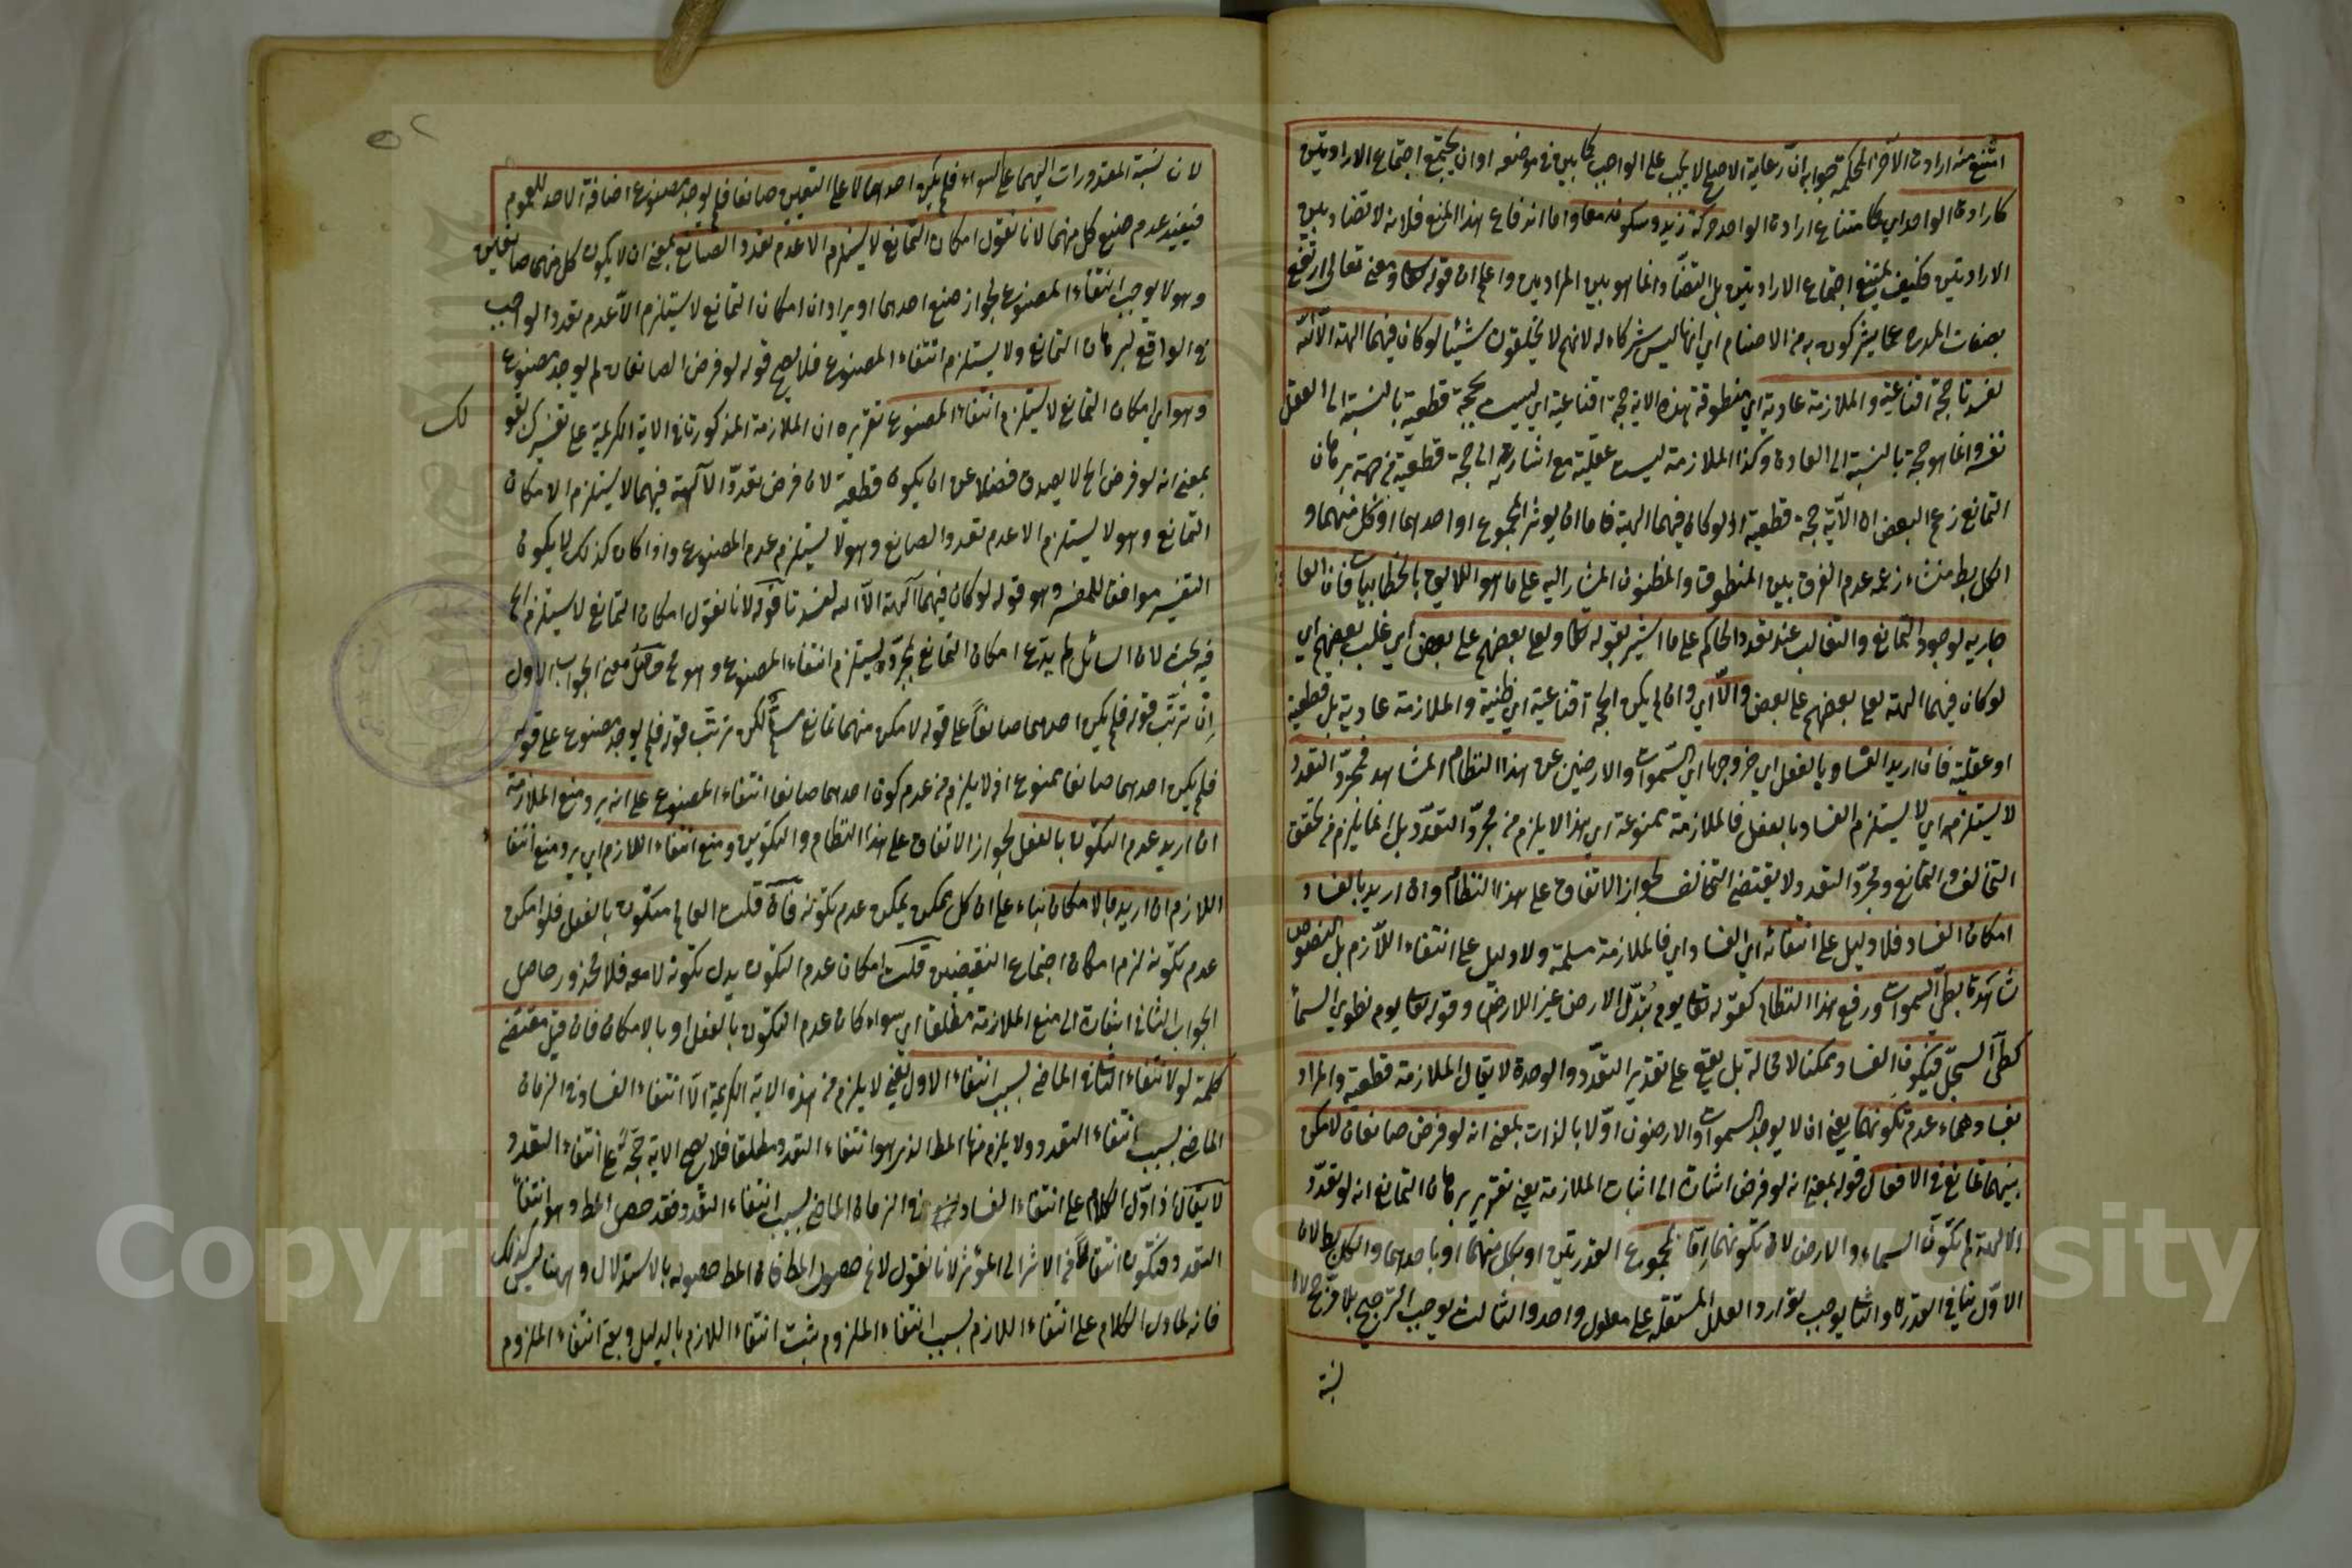 امتنع منه ارادة الآخر الحكمة جوابه ان رعاية الاصلح لا يجب على الواجب كما بين في موضعه او ان يجتمع اجتماع الارادتين
كارادة الواحد اي كامتناع ارادة الواحد حركة زيد وسكونه معا واما اندفاع هذا المنع فلانه لا تضاد بين
الارادتين فكيف يمتنع اجتماع الارادتين بل التضاد انما هو بين المرادين واعلم ان قوله تعالى ومعنى تعالى ارتفع
بصفات المدح عما يشركون به من الاصنام اي انها ليس شركاء له لانهم لا يخلقون شيئا لو كان فيهما الهة الا الله
لفسدتا حجة اقناعية والملازمة عادية اي منطوقة هذه الاية حجة اقناعية اي ليست بحجة قطعية بالنسبة الى العقل
نفسه وانما هو حجة بالنسبة الى العادة وكذا الملازمة ليست عقلية مع اشارته الى حجة قطعية في جهة برهان
التمانع زعم البعض ان الآية حجة قطعية اذ لو كان فيهما الهة فاما ان يوثر المجموع او احدهما او كل منهما و
الكل بط منشاء زعمه عدم الفرق بين المنطوق والمظنون المشار اليه على ما هو اللايق بالخطابيات فان العا
جارية لوجود التمانع والتغالب عند تعدد الحاكم على ما اشير بقوله تعالى ولعلا بعضهم على بعض اي غلب بعضهم اي
لو كان فيهما الهة لعلا بعضهم على بعض والا اي وان لم يكن الحجة اقناعية اي ظنية والملازمة عادية بل قطعية
او عقلية فان اريد الفساد بالفعل اي خروجهما اي السموات والارضين عن هذا النظام المشاهد فمجرد التعدد
لا يستلزمه اي لا يستلزم الفساد بالفعل فالملازمة ممنوعة اي هذا لا يلزم من مجرد التعدد بل انما يلزم من تحقق
التخالف والتمانع ومجرد التعدد لا يقتضي التخالف لجواز الاتفاق على هذا النظام وان اريد بالفساد
امكان الفساد فلا دليل على انتفائه اي الفساد اي فالملازمة مسلمة ولا دليل على انتفاء اللازم بل النصوص
شاهدة بطي السموات ورفع هذا النظام كقوله تعالى يوم تبدل الارض غير الارض وقوله تعالى يوم نطوي السماء
كطي السجل فيكون الفساد ممكنا لا محالة بل يقع على تقدير التعدد والوحدة لا يقال الملازمة قطعية والمراد
بفسادهما عدم تكونهما يعني ان لا يوجد السموات والارضون اولا بالذات بمعنى انه لو فرض صانعان لامكن
بينهما تمانع في الافعال قوله بمعنى انه لو فرض اشارة الى اثبات الملازمة يعني تقرير برهان التمانع انه لو تعدد
الالهة لم تكون السماء والارض لان تكونهما اما بمجموع القدرتين او بكل منهما او باحدهما والكل بط لان
الاول ينافي القدرة والثاني يوجب توارد العلل المستقلة على معلول واحد والثالث يوجب الترجيح بلا مرجح لا
نسبة
لان نسبة المقدورات اليهما على السواء فلم يكن احدهما لا على التعيين صانعا فلم يوجد مصنوع اضافة الاحد للعموم
فيفيد عدم صنع كل منهما لانا نقول امكان التمانع لا يستلزم الا عدم تعدد الصانع بمعنى ان لا يكون كل منهما صانعين
وهو لا يوجب انتفاء المصنوع لجواز صنع احدهما او يراد ان امكان التمانع لا يستلزم الا عدم تعدد الواجب
في الواقع لبرهان التمانع ولا يستلزم انتفاء المصنوع فلا يصح قوله لو فرض الصانعان لم يوجد مصنوع
وهو اي امكان التمانع لا يستلزم انتفاء المصنوع تقريره ان الملازمة المذكورة في الاية الكريمة على تفسيرك بقو
لك
بمعنى انه لو فرض الخ لا يصدق فضلا عن ان يكون قطعية لان فرض تعدد الآلهة فيهما لا يستلزم الا امكان
التمانع وهو لا يستلزم الا عدم تعدد الصانع وهو لا يستلزم عدم المصنوع واذا كان كذلك لا يكون
التفسير موافقا للمفسر وهو قوله لو كان فيهما آلهة الا الله لفسدتا قوله لانا نقول امكان التمانع لا يستلزم الخ
فيه بحث لان السائل لم يدع امكان التمانع بمجرده يستلزم انتفاء المصنوع وهو مح حاصل معنى الجواب الاول
ان ترتب قوله فلم يكن احدهما صانعا على قوله لامكن منهما تمانع مسلم لكن ترتب قوله فلم يوجد مصنوع على قوله
فلم يكن احدهما صانعا ممنوع اذ لا يلزم من عدم كون احدهما صانعا انتفاء المصنوع على انه يرد منع الملازمة
ان اريد عدم التكون بالفعل لجواز الاتفاق على هذا النظام والتكوين ومنع انتفاء اللازم اي يرد منع انتفا
اللازم ان اريد بالامكان بناء على ان كل ممكن يمكن عدم تكونه فان قلت العالم متكون بالفعل فلو امكن
عدم تكونه لزم امكان اجتماع النقيضين قلت امكان عدم التكون بدل تكونه لا معه فلا محذور حاصل
الجواب الثاني اشارة الى منع الملازمة مطلقا اي سواء كان عدم التكون بالفعل او بالامكان فان قيل مقتضى
كلمة لو لانتفاء الثاني في الماضي بسبب انتفاء الاول يعني لا يلزم من هذه الاية الكريمة الا انتفاء الفساد في الزمان
الماضي بسبب انتفاء التعدد ولا يلزم منها المط الذي هو انتفاء التعدد مطلقا فلا يصح الاية حجة على انتفاء التعدد
لا يقال اذا اول الكلام على انتفاء الفساد في الزمان الماضي بسبب انتفاء التعدد فقد حصل المط وهو انتفاء
التعدد فتكون انتقالا من الاثر الى المؤثر لانا نقول لا نم حصول المط فان المط حصوله بالاستدلال وههنا ليس كذلك
فانه لما دل الكلام على انتفاء اللازم بسبب انتفاء الملزوم يثبت انتفاء اللازم بالدليل وبقي انتفاء الملزوم
Copyright © King Saud University